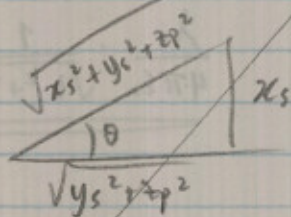 √xs²+ys²+zp²
xs
θ
√ys²+zp²